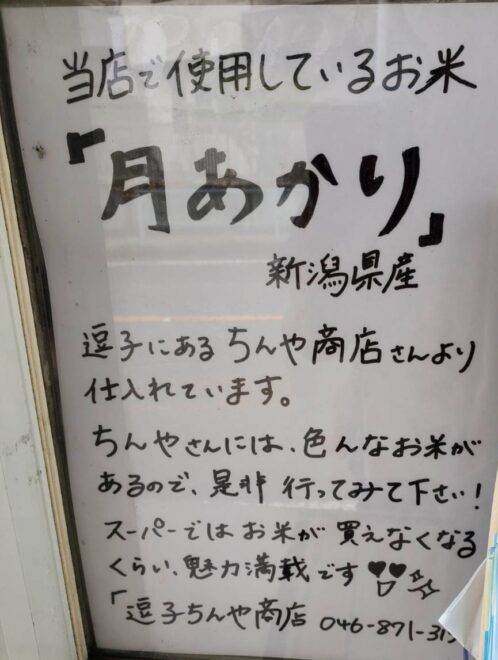 当店で使用しているお米
「月あかり」
新潟県産
逗子にあるちんや商店さんより
仕入れています。
ちんやさんには、色んなお米が
あるので、是非 行ってみて下さい!
スーパーではお米が買えなくなる
くらい、魅力満載です♥♥
「逗子ちんや商店 046-871-31